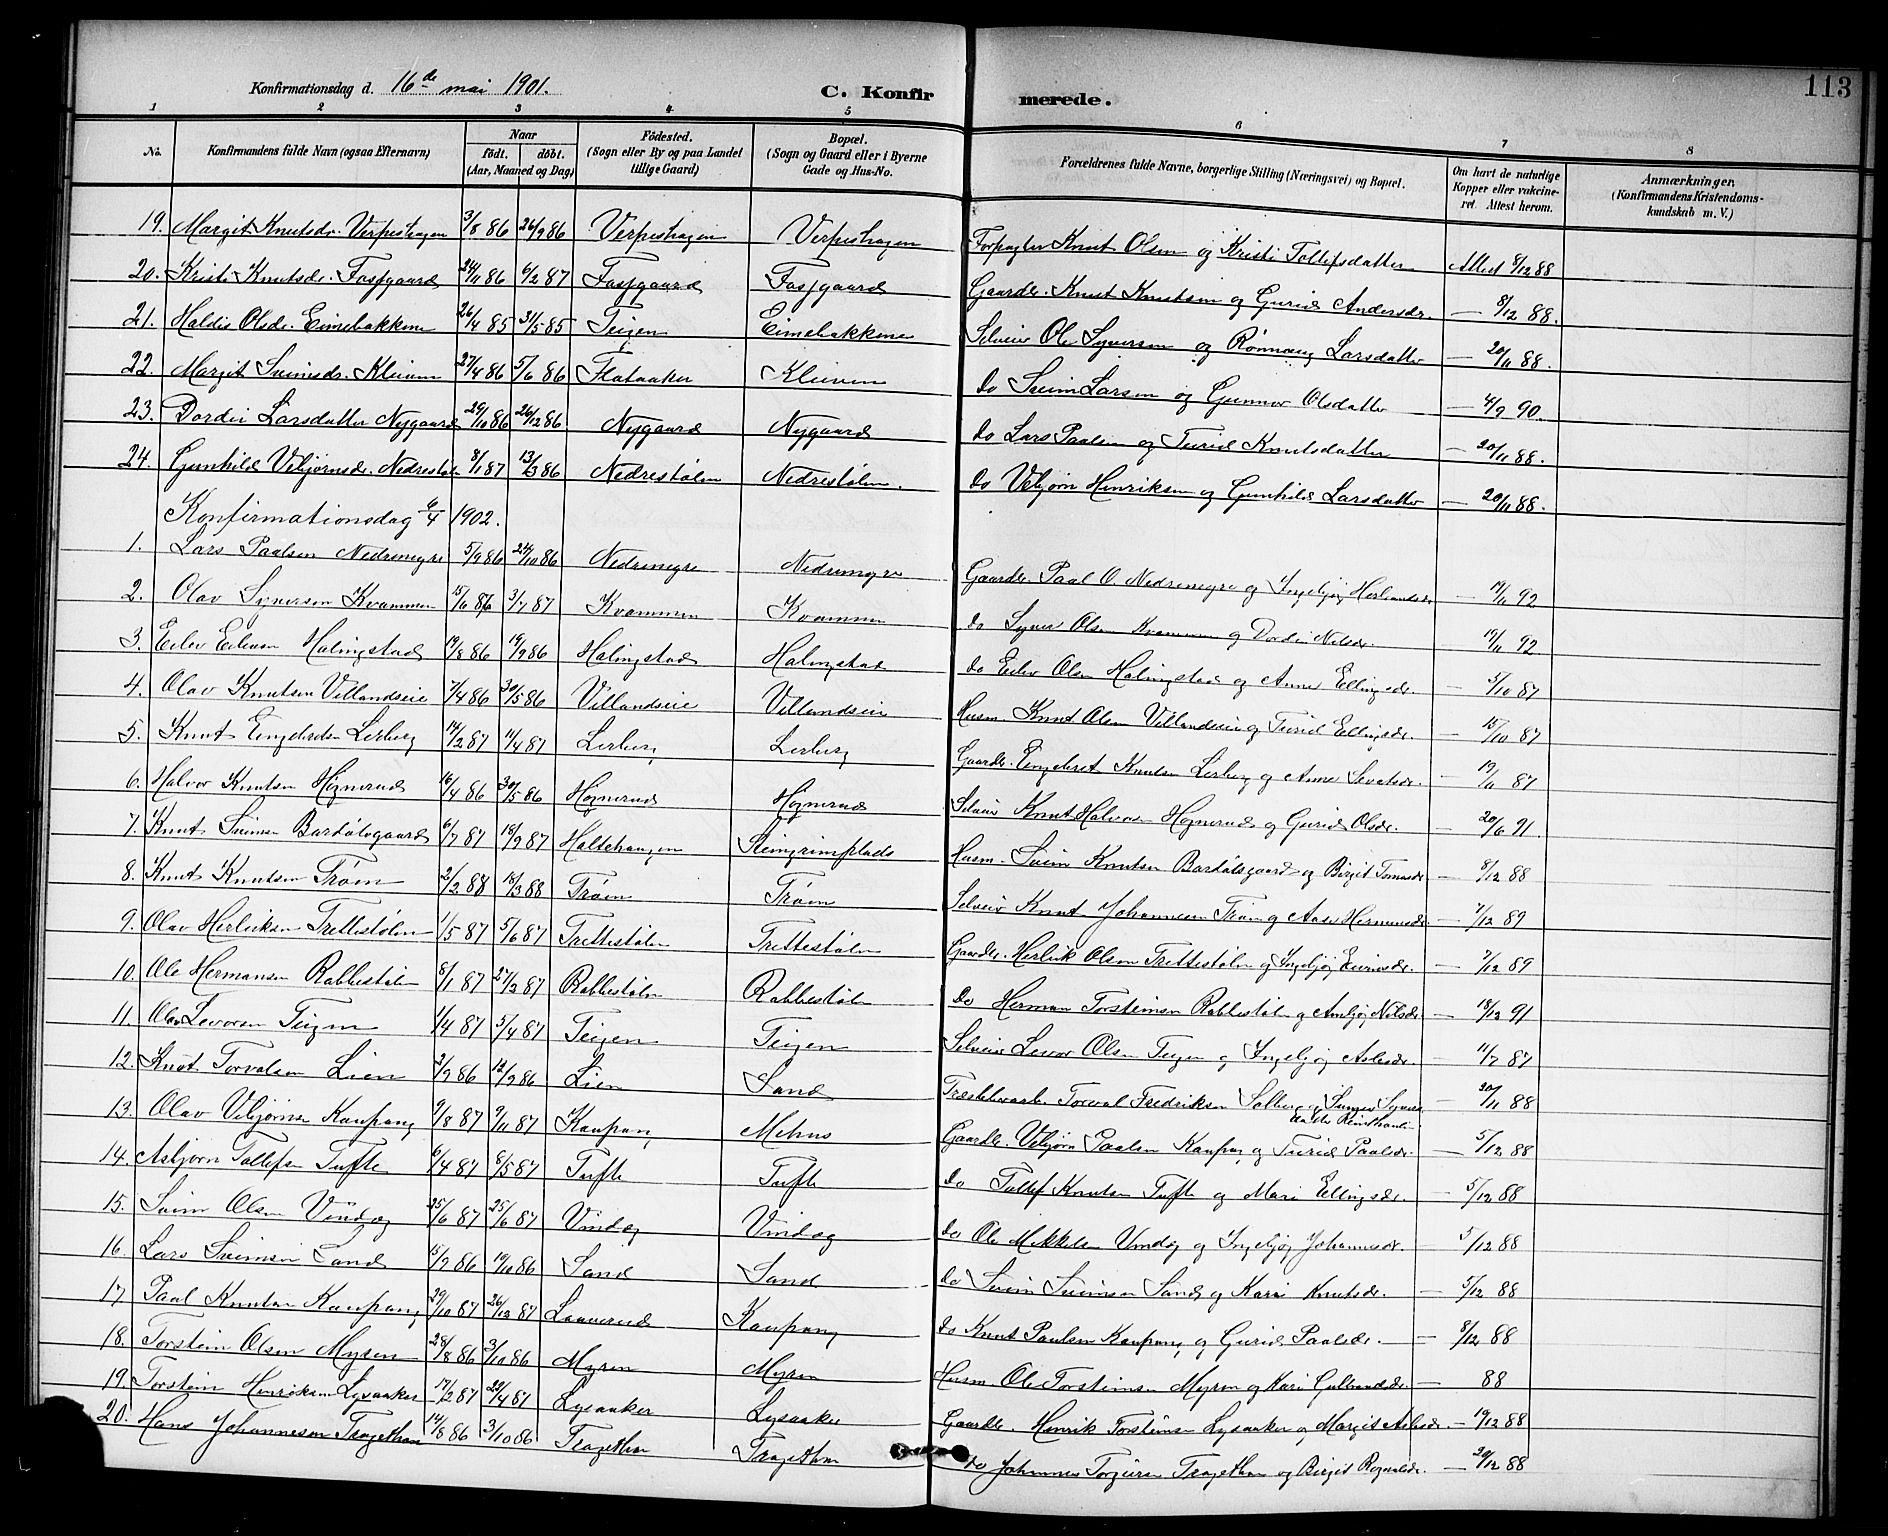 113
Konfirmationsdag d. 16de mai 1901.
C. Konfirmerede.
1 2 3 4 5 6 7 8
No. Konfirmandens fulde Navn (ogsaa Efternavn) Naar födt. döbt. (Aar, Maaned og Dag) Födested. (Sogn eller By og paa Landet tillige Gaard) Bopæl. (Sogn og Gaard eller i Byerne Gade og Hus-No. Forældrenes fulde Navne, borgerlige Stilling (Næringsvei) og Bopæl. Om havt de naturlige Kopper eller vakcineret. Attest herom. Anmærkninger. (Konfirmandens Kristendomskundskab m. V.)
19. Margit Knutsdr. Verpeshagen 3/8 86 26/9 86 Verpeshagen Verpeshagen Forpagter Knut Olsen og Kristi Tollefsdatter Attest 8/12 88
20. Kristi Knutsdr. Fosgaard 24/11 86 6/2 87 Fosgaard Fosgaard Gaardbr. Knut Knutsen og Gurid Andersdr. — 8/12 88.
21. Haldis Olsdr. Eimebakkene 26/4 85 31/5 85 Teigen Eimebakkene Selveier Ole Syversen og Rønnaug Larsdatter — 20/11 88.
22. Margit Svensdr. Kleiven 27/4 86 5/6 86 Flataaker Kleiven do Svein Larsen og Gunnor Olsdatter — 4/9 90.
23. Dordei Larsdatter Nygaard 29/10 86 26/12 86 Nygaard Nygaard do Lars Paalsen og Turid Knutsdatter — 20/11 88.
24. Gunhild Vebjørnsdr. Nedrestølen 8/1 87 13/3 86 Nedrestølen Nedrestølen. do Vebjørn Henriksen og Gunhild Larsdatter — 20/11 88.
Konfirmationsdag 6/4 1902.
1. Lars Paalsen Nedrenegre 5/9 86 24/10 86 Nedrenegre Nedrenegre Gaardbr. Paal O. Nedrenegre og Ingebjøg — 19/11 92
2. Olav Syversen Kvammen 15/11 86 3/7 87 Kvammen Kvammen do Syver Olsen Kvammen og Dordei Nilsdr. — 19/11 92
3. Eilev Eilevsen Halingstad 19/8 86 19/9 86 Halingstad Halingstad do Eilev Olsen Halingstad og Anne Ellingsdr. — 5/10 87
4. Olav Knutsen Villandseie 7/4 86 30/5 86 Villandseie Villandseie Husm. Knut Olsen Villandseie og Turid Ellingsdr. — 15/10 87
5. Knut Engebretsen Lerberg 14/2 87 11/4 87 Lerberg Lerberg Gaardbr. Engebret Knutsen Lerberg og Anne Sevatsdr. — 19/11 87
6. Halvor Knutsen Høgnerud 16/4 86 30/5 86 Høgnerud Høgnerud Selveier Knut Halvorsen Høgnerud og Gurid Olsdr. — 20/6 91.
7. Knut Sveinsen Bardølsgaard 6/7 87 18/9 87 Haltehaugen Steingrimsplads Husm. Svein Knutsen Bardølsgaard og Birgit Tomasdr. — 8/12 88
8. Knut Knutsen Trøim 2/2 88 18/3 88 Trøim Trøim Selveier Knut Johannessen Trøim og Aase Hermunsdr. — 7/12 89
9. Olav Herleiksen Trettestølen 1/5 87 5/6 87 Trettestølen Trettestølen Gaardbr. Herleik Olsen Trettestølen og Ingebjøg — 7/12 89
10. Ole Hermansen Rabbestølen 8/1 87 27/2 87 Rabbestølen Rabbestølen do Herman Torsteinsen Rabbestølen og Ambjøg Nilsdr. — 18/12 91
11. Olav Levorsen Teigen 1/4 87 5/4 87 Teigen Teigen Selveier Levor Olsen Teigen og Ingebjøg Aslesdr. — 11/7 87
12. Knut Torvalsen Lien 2/9 86 12/9 86 Lien Sand Torval Fredriksen Solberg og — 20/11 88
13. Olav Vebjørnsen Kaupang 9/8 87 9/11 87 Kaupang Mehus Gaardbr. Vebjørn Paalsen Kaupang og Turid Paalsdr. — 5/12 88
14. Asbjørn Tollefsen Tufte 6/4 87 8/5 87 Tufte Tufte do Tollef Knutsen Tufte og Mari Ellingsdr. — 5/12 88
15. Svein Olsen Vindøg 25/6 87 25/6 87 Vindøg Vindøg do Ole Mikkelsen Vindøg og Ingebjøg Johannesdr. — 5/12 88
16. Lars Sveinsen Sand 15/9 86 19/10 86 Sand Sand do Svein Sveinsen Sand og Kari Knutsdr. — 5/12 88
17. Paal Knutsen Kaupang 29/10 87 26/12 87 Laaverud Kaupang do Knut Paulsen Kaupang og Gurid Paalsdr. — 8/12 88
18. Torstein Olsen Myren 28/8 86 3/10 86 Myren Myren Husm. Ole Torsteinsen Myren og Kari Gulbrandsdr. — 88
19. Torstein Henriksen Lysaaker 17/2 87 23/4 87 Lysaaker Lysaaker Gaardbr. Henrik Torsteinsen Lysaaker og Margit Aslesdr. — 19/12 88
20. Hans Johannessen Tragethon 14/8 86 3/10 86 Tragethon Tragethon do Johannes Torgeirsen Tragethon og Birgit — 20/12 88